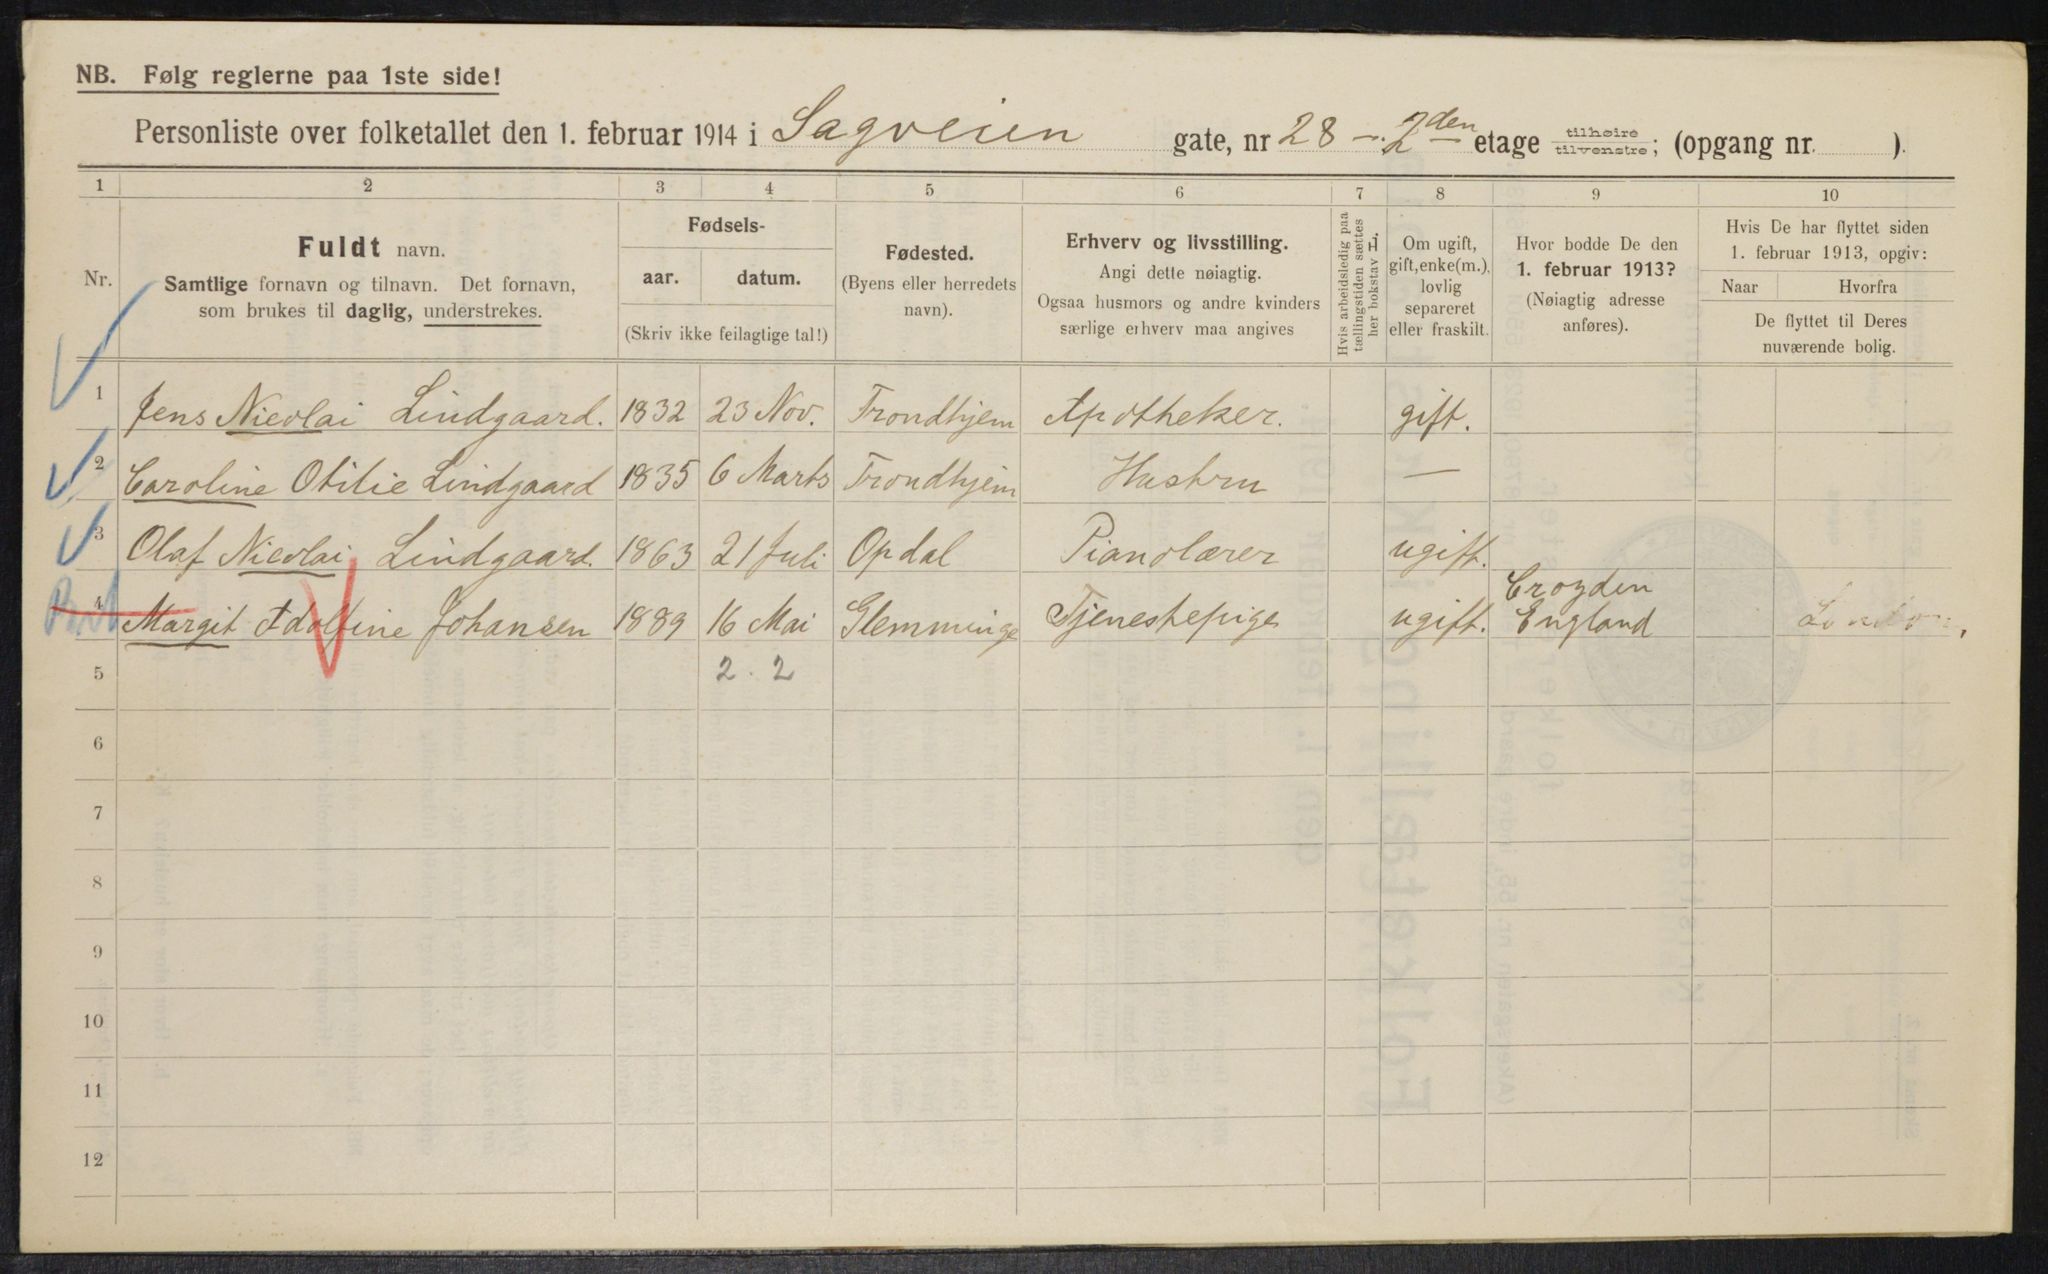 NB. Følg reglerne paa 1ste side!
Personliste over folketallet den 1. februar 1914 i Sagveien gate, nr 28 – 2den etage tilhøire tilvenstre; (opgang nr. ).
1 2 3 4 5 6 7 8 9 10
Nr.
Fuldt navn.
Samtlige fornavn og tilnavn. Det fornavn,
som brukes til daglig, understrekes.
Fødsels-
aar. datum.
(Skriv ikke feilagtige tal!)
Fødested.
(Byens eller herredets
navn).
Erhverv og livsstilling.
Angi dette nøiagtig.
Ogsaa husmors og andre kvinders
særlige erhverv maa angives
Hvis arbeidsledig paa
tællingstiden sættes
her bokstav L.
Om ugift,
gift, enke(m.),
lovlig
separeret
eller fraskilt.
Hvor bodde De den
1. februar 1913?
(Nøiagtig adresse
anføres).
Hvis De har flyttet siden
1. februar 1913, opgiv:
Naar Hvorfra
De flyttet til Deres
nuværende bolig.
1 Jens Nicolai Lindgaard. 1832 23 Nov. Trondhjem Apotheker. gift.
2 Caroline Otilie Lindgaard 1835 6 Marts Trondhjem Hustru —
3 Olaf Nicolai Lindgaard. 1863 21 Juli Opdal Pianolærer ugift.
4 Margit Adolfine Johansen 1889 16 Mai Glemminge Tjenestepige ugift. Croyden England London,
5 2. 2
6
7
8
9
10
11
12